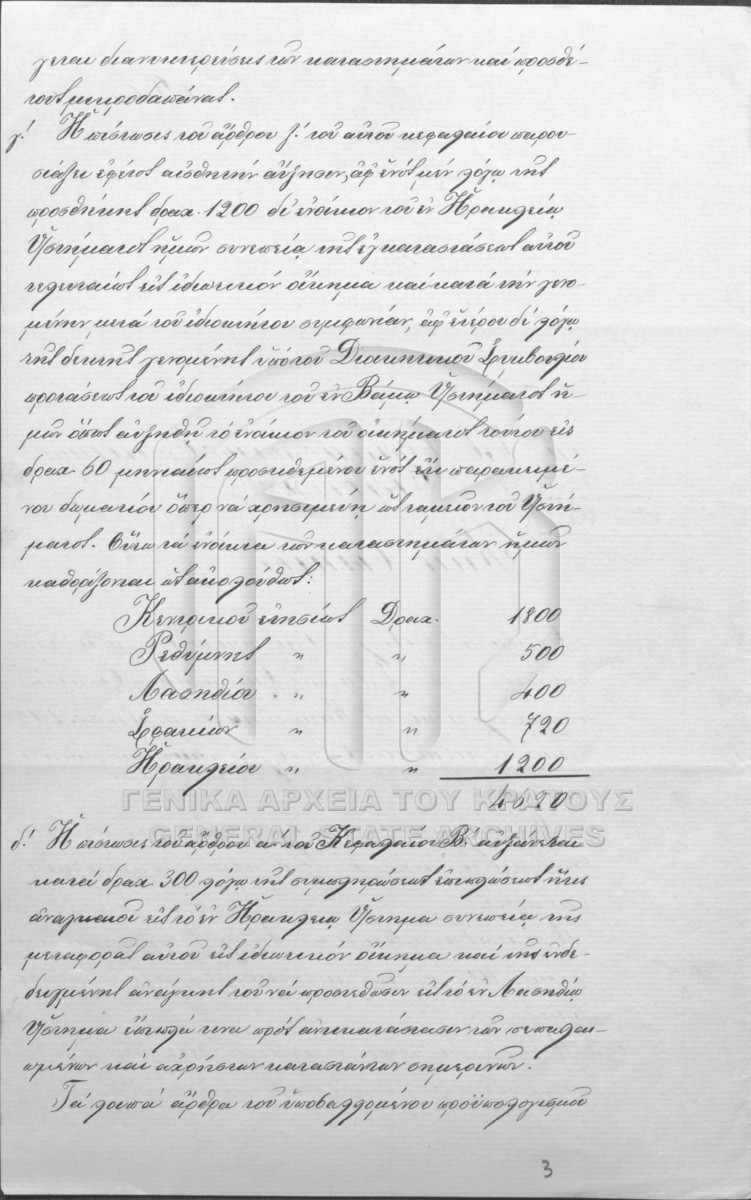 γεται διανυκτερεύσεις τῶν καταστημάτων καὶ προσθέ-
τους μικροδαπάνας.
γ.' Ἡ πίστωσις τοῦ ἄρθρου ζ' τοῦ αὐτοῦ κεφαλαίου παρου-
σιάζει ἐφέτος αἰσθητὴν αὔξησιν, ἀφ' ἑνὸς μὲν λόγῳ τῆς
προσθήκης δραχ. 1200 δι' ἐνοίκιον τοῦ ἐν Ἡρακλείῳ
Ὑστήματος ἡμῶν συνεπείᾳ τῆς ἐγκαταστάσεως αὐτοῦ
τελευταίως εἰς ἰδιωτικὸν οἴκημα καὶ κατὰ τὴν γενο-
μένην μετὰ τοῦ ἰδιοκτήτου συμφωνίαν, ἀφ' ἑτέρου δὲ λόγῳ
τῆς δεκτῆς γενομένης ὑπὸ τοῦ Διοικητικοῦ Συμβουλίου
προτάσεως τοῦ ἰδιοκτήτου τοῦ ἐν Βάμῳ Ὑστήματος ἡ-
μῶν ὅπως αὐξηθῇ τὸ ἐνοίκιον τοῦ οἰκήματος τούτου εἰς
δραχ. 60 μηνιαίως προστιθεμένου ἑνὸς ἔτι παρακειμέ-
νου δωματίου ὅπερ νὰ χρησιμεύῃ ὡς ταμεῖον τοῦ Ὑστή-
ματος. Οὕτω τὰ ἐνοίκια τῶν καταστημάτων ἡμῶν
καθορίζονται ὡς ἀκολούθως:
Κεντρικοῦ ἐτησίως Δραχ. 1800
Ρεθύμνης " " 500
Λασηθίου " " 400
Σφακίων " " 720
Ἡρακλείου " " 1200
4620
δ.' Ἡ πίστωσις τοῦ ἄρθρου α' τοῦ Κεφαλαίου Β' αὐξάνεται
κατὰ δραχ. 300 λόγῳ τῆς συμπληρώσεως ἐπιπλώσεως τῆς
ἀναγκαιού εἰς τὸ ἐν Ἡρακλείῳ Ὑστημα συνεπείᾳ τῆς
μεταφορᾶς αὐτοῦ εἰς ἰδιωτικὸν οἴκημα καὶ τῆς ἐνδε-
δειγμένης ἀνάγκης τοῦ νὰ προστεθῶσιν εἰς τὸ ἐν Λασηθίῳ
Ὑστημα ἔπιπλά τινα πρὸς ἀντικατάστασιν τῶν πεπαλαι-
ωμένων καὶ ἀχρήστων καταστάντων σημερινῶν.
Τὰ λοιπὰ ἄρθρα τοῦ ὑποβαλλομένου προϋπολογισμοῦ
3
ΓΕΝΙΚΑ ΑΡΧΕΙΑ ΤΟΥ ΚΡΑΤΟΥΣ
GENERAL STATE ARCHIVES